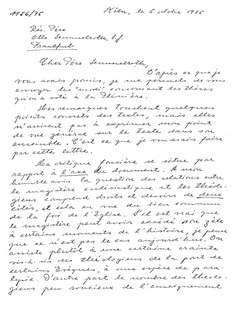 1156/75 Köln, le 5 octobre 1975
Rév. Père
Otto Semmelroth, s.j.
Frankfurt
Cher Père Semmelroth,
D'après ce que je
vous avais promis, je me permets de vous
envoyer les "modi" concernant les thèses
qu'on a voté à la Plénière.
Mes remarques touchent quelques
points concrets des textes, mais elles
n'arrivent pas à exprimer mon point
de vue général sur le texte dans son
ensemble. C'est ce que je voudrais faire
par cette lettre.
Ma critique foncière se situe par
rapport à l'axe du document. A mon
humble avis la question des relations entre
le magistère ecclésiastique et les théolo-
giens comprend droits et devoirs de deux
côtés, et cela en vue du bien commun
de la foi de l'Eglise. S'il est vrai que
le magistère peut avoir excédé son zèle
à certains moments de l'histoire, je pense
que ce n'est pas le cas aujourd'hui. On
assiste plutôt à une certaine crainte
vis-à-vis des théologiens de la part de
certains évêques, à une espèce de para-
lysie. D'autre part le nombre des théolo-
giens peu soucieux de l'enseignement